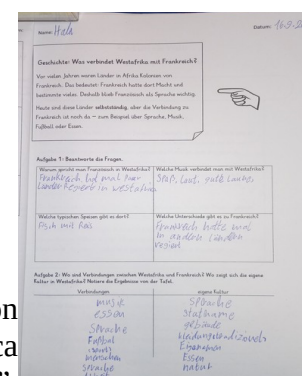 Name: Hala
Datum: 16.9.2
Geschichte: Was verbindet Westafrika mit Frankreich?
Vor vielen Jahren waren Länder in Afrika Kolonien von
Frankreich. Das bedeutet: Frankreich hatte dort Macht und
bestimmte vieles. Deshalb blieb Französisch als Sprache wichtig.
Heute sind diese Länder selbstständig, aber die Verbindung zu
Frankreich ist noch da – zum Beispiel über Sprache, Musik,
Fußball oder Essen.
Aufgabe 1: Beantworte die Fragen.
Warum spricht man Französisch in Westafrika?
Frankreich hat mal
Länder Regiert in westafrika
Welche Musik verbindet man mit Westafrika?
Spaß, Laut, gute Laune
Welche typischen Speisen gibt es dort?
Fisch mit Reis
Welche Unterschiede gibt es zu Frankreich?
Frankreich hatte mal
in andern Ländern
regiert
Aufgabe 2: Wo sind Verbindungen zwischen Westafrika und Frankreich? Wo zeigt sich die eigene
Kultur in Westafrika? Notiere die Ergebnisse von der Tafel.
Verbindungen
musik
essen
Sprache
Fußball
menschen
sprache
eigene Kultur
Sprache
gebäude
Essen
natur
on
ca